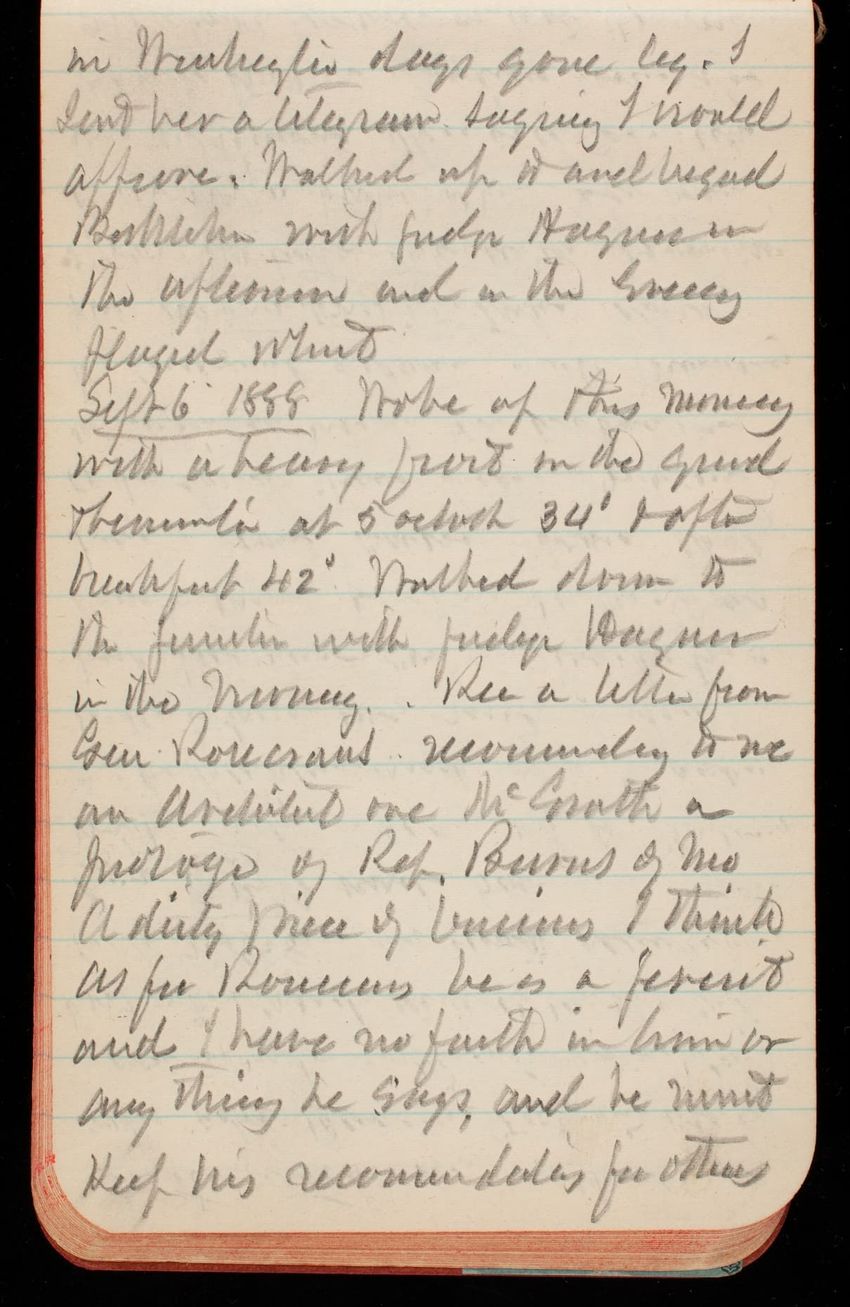 in Washington days gone by. I
Sent her a telegram saying I would
approve. Walked up to and
with Judge Hagner in
the afternoon and in the Evening
played Whist
Sept 6 1888 Woke up this morning
with a heavy frost on the ground
Thermometer at 5 oclock 34° & after
breakfast 42° Walked down to
the with Judge Hagner
in the Morning. . Rec a letter from
Gen Rosecrans recommending to me
an Architect one McGrath a
protoge of Rep. Burns of Mo
A dirty piece of business I think
as for Rosecrans he is a
and I have no faith in him or
any thing he Says, and he must
Keep his recommendations for others